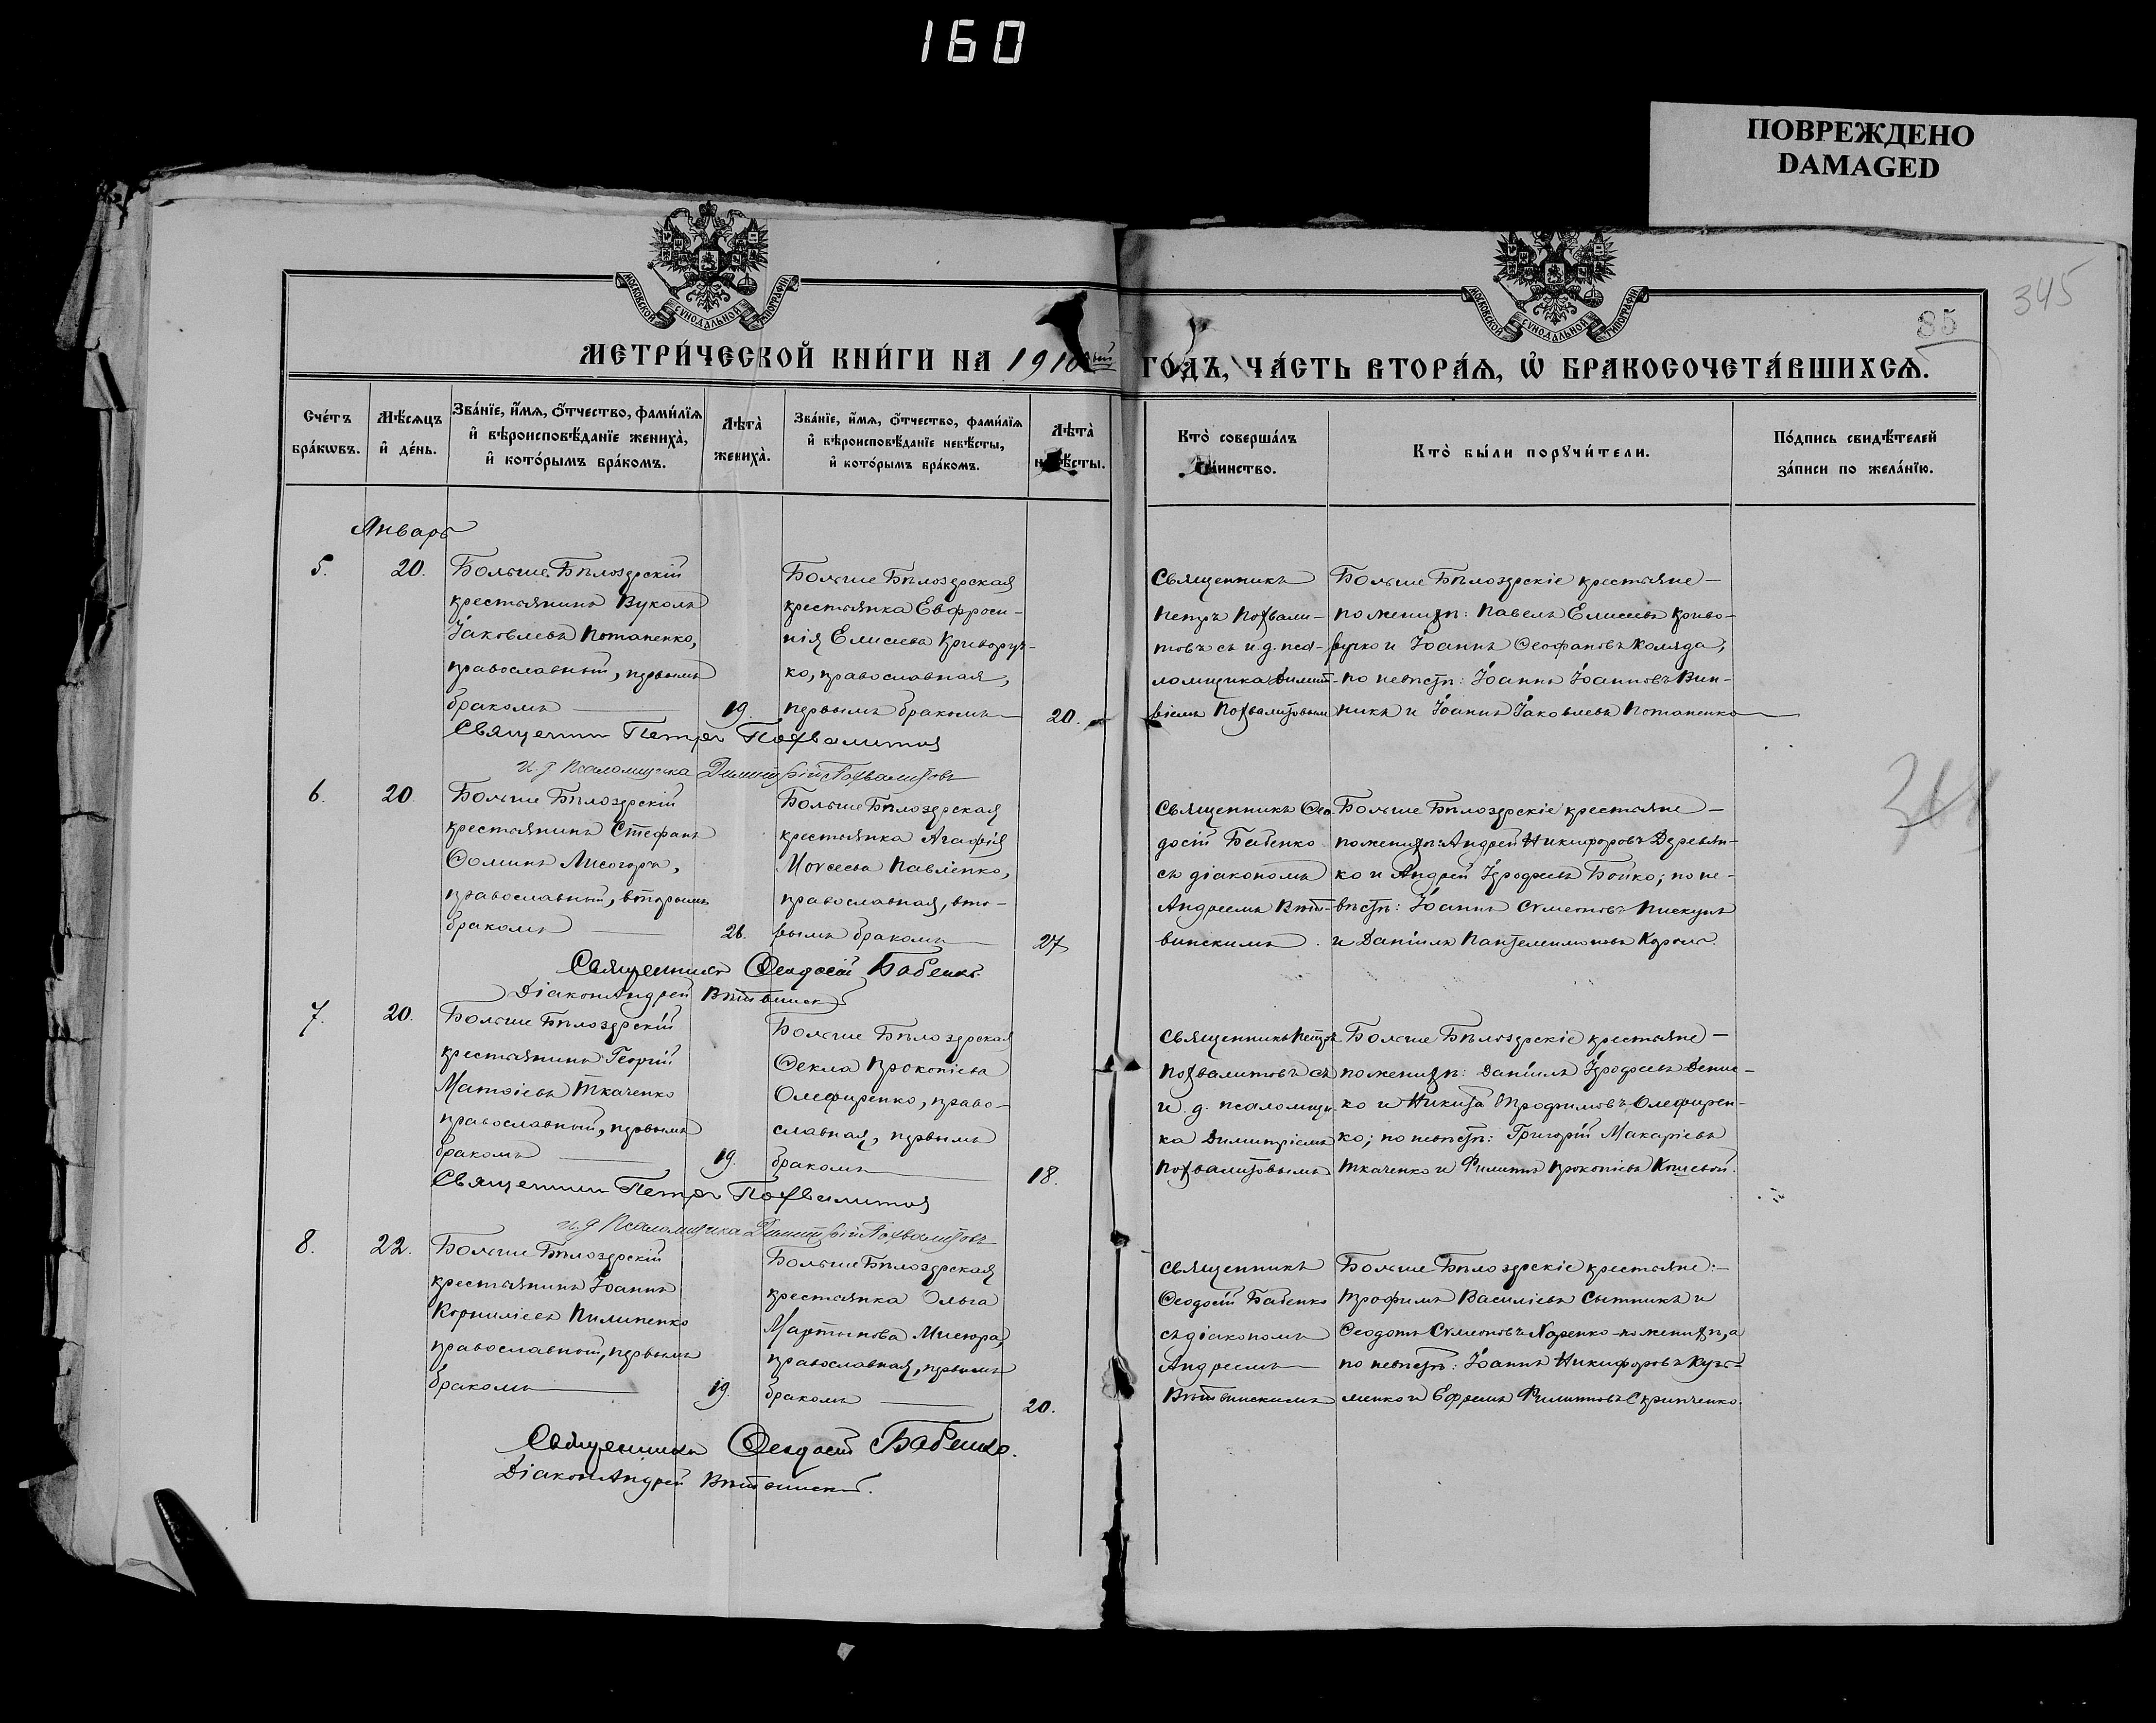 160
ПОВРЕЖДЕНО
DAMAGED
345
85
МОСКОВСКОЙ СѴНОДАЛЬНОЙ ТИПОГРАФІИ
МОСКОВСКОЙ СѴНОДАЛЬНОЙ ТИПОГРАФІИ
МЕТРИ́ЧЕСКОЙ КНИ́ГИ НА 1910ый ГО́ДЪ, ЧА́СТЬ ВТОРА́Я, Ѡ҆ БРАКОСОЧЕТА́ВШИХСЯ.
Сче́тъ бра́кѡвъ.
Мѣ́сяцъ и҆ де́нь.
Зва́нїе, и҆́мя, ѻ҆́тчество, фами́лїя и҆ вѣроисповѣ́данїе жениха̀, и҆ кото́рымъ бра́комъ.
Лѣта̀ жениха̀.
Зва́нїе, и҆́мя, ѻ҆́тчество, фами́лїя и҆ вѣроисповѣ́данїе невѣ́сты, и҆ кото́рымъ бра́комъ.
Лѣта̀ невѣ́сты.
Кто̀ соверша́лъ таинство.
Кто̀ бы́ли порꙋчи́тели.
По́дпись свидѣ́телей за́писи по жела́нїю.
Январь
5.
20.
Больше-Бѣлозерскій
крестьянинъ Вуколъ
Іаковлевъ Потапенко,
православный, первымъ
бракомъ
19.
Больше Бѣлозерская
крестьянка Евфроси-
нія Елисеева Криворуч-
ко, православная,
первымъ бракомъ
20.
Священникъ
Петръ Похвали-
товъ съ и. д. пса-
ломщика Димит-
ріемъ Похвалитовым
Больше Бѣлозерскіе крестьяне —
по женихѣ: Павелъ Елисеевъ Криво-
ручко и Іоаннъ Ѳеофановъ Коляда;
по невѣстѣ: Іоаннъ Іоанновъ Вин-
никъ и Іоаннъ Іаковлевъ Потапенко
Священник Петръ Похвалитов
и. д. Псаломщика Димитрій Похвалитовъ
6.
20.
Больше Бѣлозерскій
крестьянинъ Стефанъ
Ѳоминъ Лисогоръ,
православный, вторымъ
бракомъ
26.
Больше Бѣлозерская
крестьянка Агафія
Моѵсеева Павленко,
православная, вто-
рымъ бракомъ
27
Священникъ Ѳео-
досій Бабенко
съ діакономъ
Андреемъ Вит-
винскимъ
Больше Бѣлозерскіе крестьяне —
по женихѣ: Андрей Никифоровъ Деревян-
ко и Андрей Іерофеевъ Бойко; по не-
вѣстѣ: Іоаннъ Сѵмеоновъ Пискунъ
и Даніилъ Пантелеимоновъ Король.
Священникъ Ѳеодосій Бабенко.
Діаконъ Андрей Витвинскій
7.
20.
Больше Бѣлозерскій
крестьянинъ Георгій
Матѳіевъ Ткаченко
православный, первымъ
бракомъ
19.
Больше Бѣлозерская
Ѳекла Прокопіева
Олефиренко, право-
славная, первымъ
бракомъ
18.
Священникъ Петръ
Похвалитовъ съ
и. д. псаломщи-
ка Димитріемъ
Похвалитовымъ
Больше Бѣлозерскіе крестьяне —
по женихѣ: Даніилъ Іерофеевъ Денис-
ко и Никита Трофимовъ Олефирен-
ко; по невѣстѣ: Григорій Макаріевъ
Ткаченко и Филиппъ Прокопіевъ Кошевой.
Священник Петръ Похвалитов
и. д. Псаломщика Димитрій Похвалитовъ
8.
22.
Больше Бѣлозерскій
крестьянинъ Іоаннъ
Корниліевъ Пилипенко
православный, первымъ
бракомъ
19.
Больше Бѣлозерская
крестьянка Ольга
Мартынова Мисюра,
православная, первымъ
бракомъ
20.
Священникъ
Ѳеодосій Бабенко
съ діакономъ
Андреемъ
Витвинскимъ
Больше Бѣлозерскіе крестьяне: —
Трофимъ Василіевъ Сытникъ и
Ѳеодотъ Сѵмеоновъ Харенко - по женихѣ, а
по невѣстѣ: Іоаннъ Никифоровъ Кузь-
менко и Ефремъ Филипповъ Скрипченко.
Священникъ Ѳеодосій Бабенко.
Діаконъ Андрей Витвинскій.